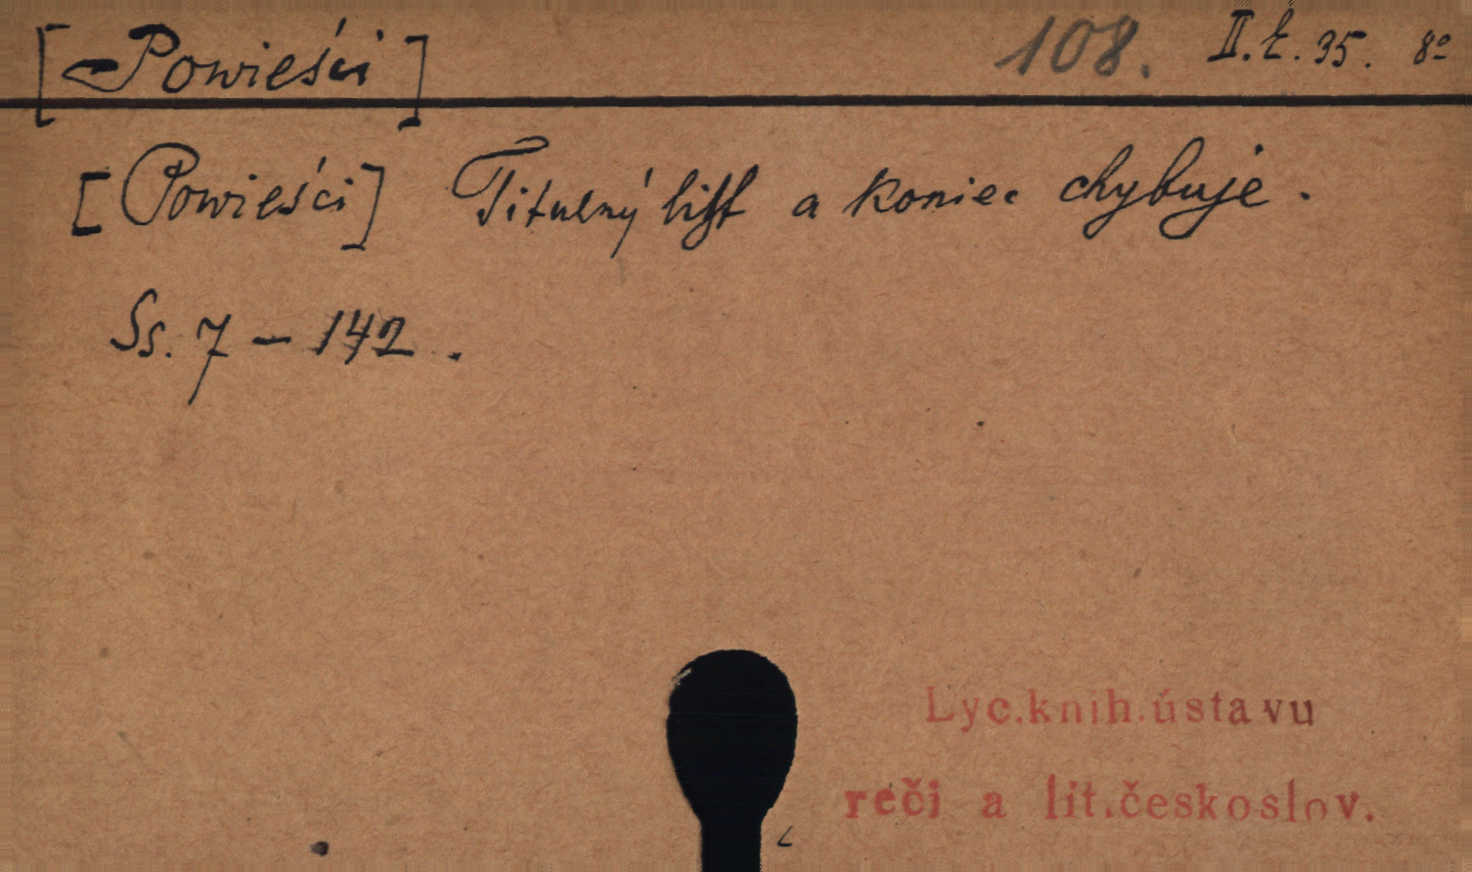 [Powieści] 108. II.t.35. 8º
[Powieści] Titulný list a koniec chybuje.
Ss. 7 – 142.
Lyc.knih.ústavu
reči a lit.českoslov.